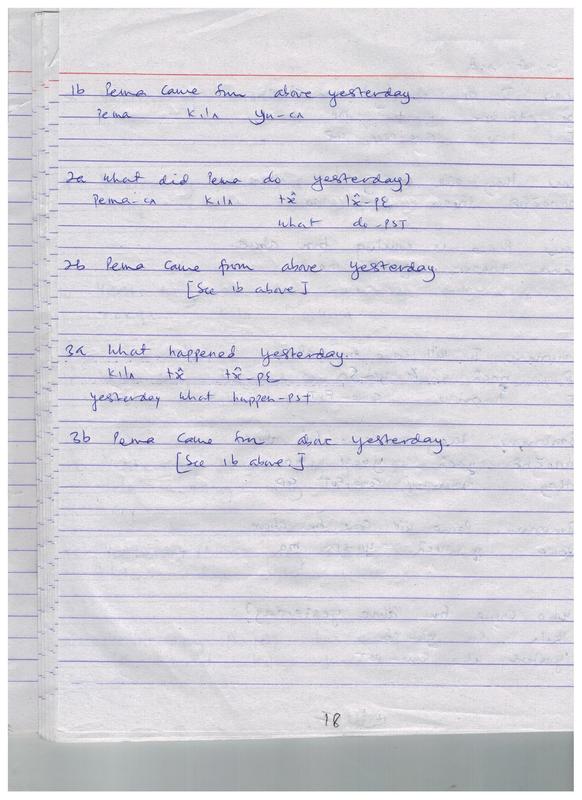 1b Pema came from above yesterday
Pema kʌlʌ yu-cʌ
2a What did Pema do yesterday)
Pema-cʌ kʌlʌ tx̂ lx̂-pɛ
what do-PST
2b Pema came from above yesterday
[See 1b above]
3a What happened yesterday.
kʌlʌ tx̂ tx̂-pɛ
yesterday what happen-PST
3b Pema came from above yesterday.
[See 1b above.]
18